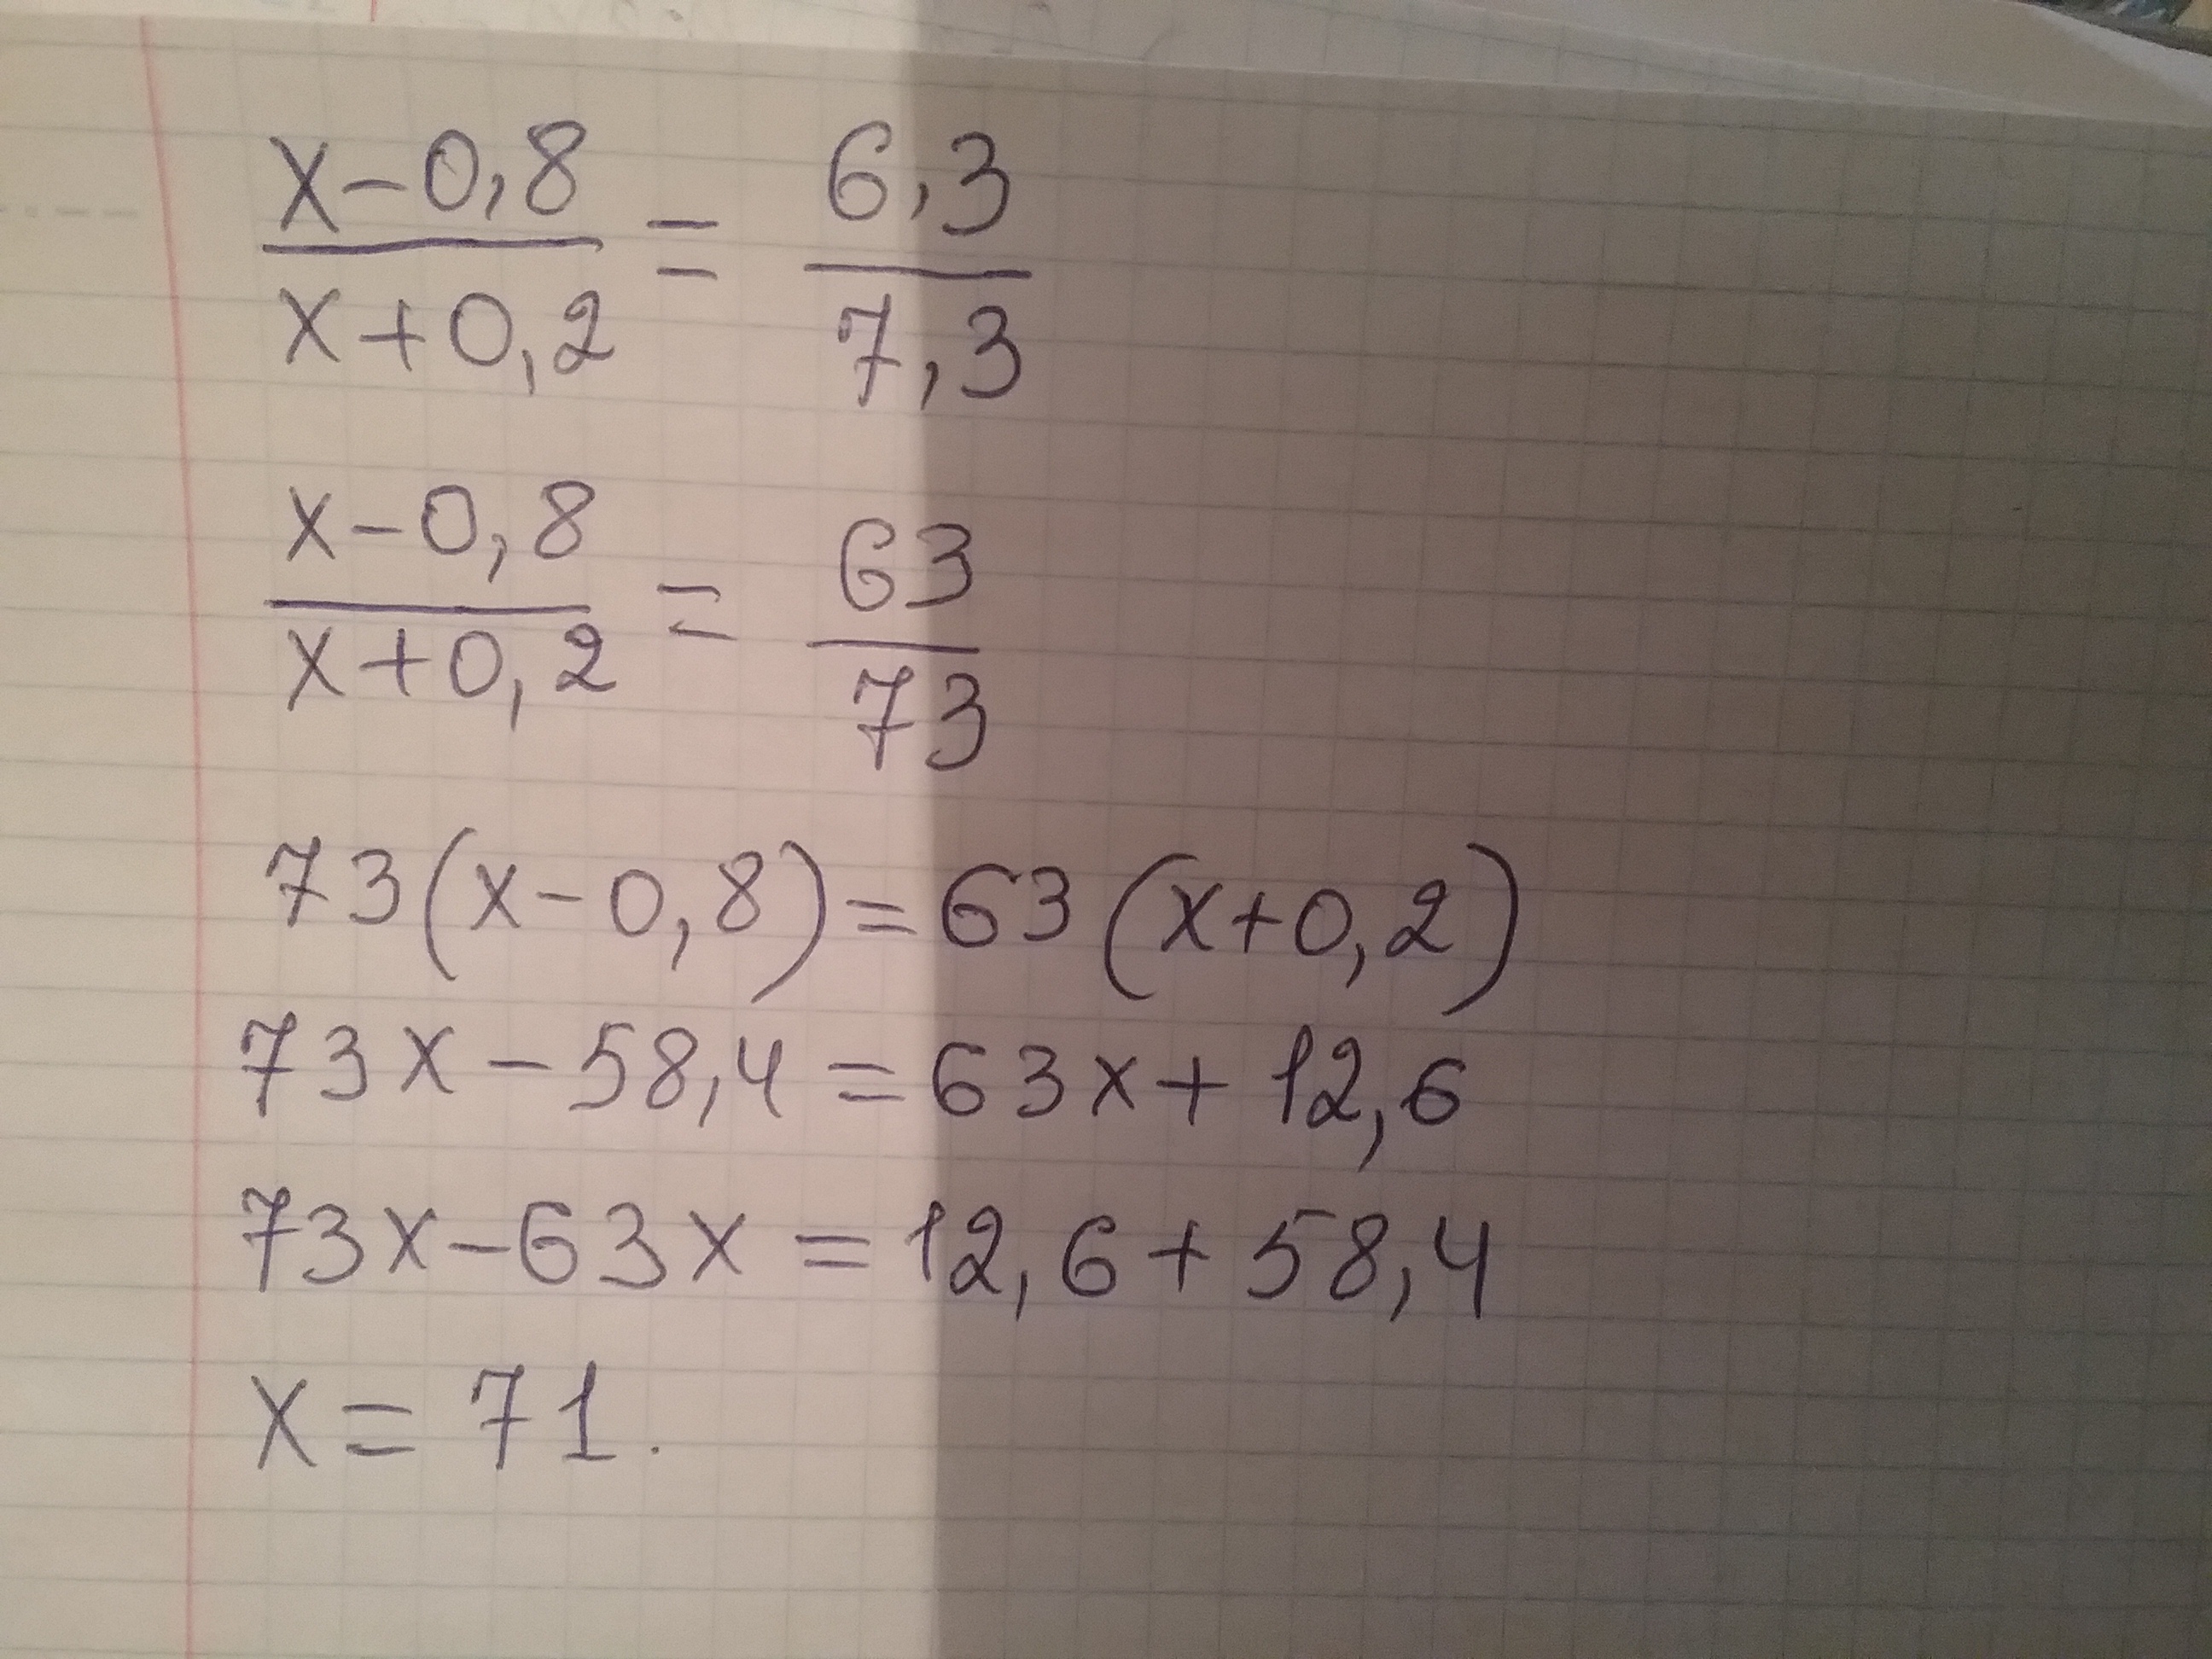 x-0,8 / x+0,2 = 6,3 / 7,3
x-0,8 / x+0,2 = 63 / 73
73(x-0,8)=63(x+0,2)
73x-58,4=63x+12,6
73x-63x=12,6+58,4
x=71.